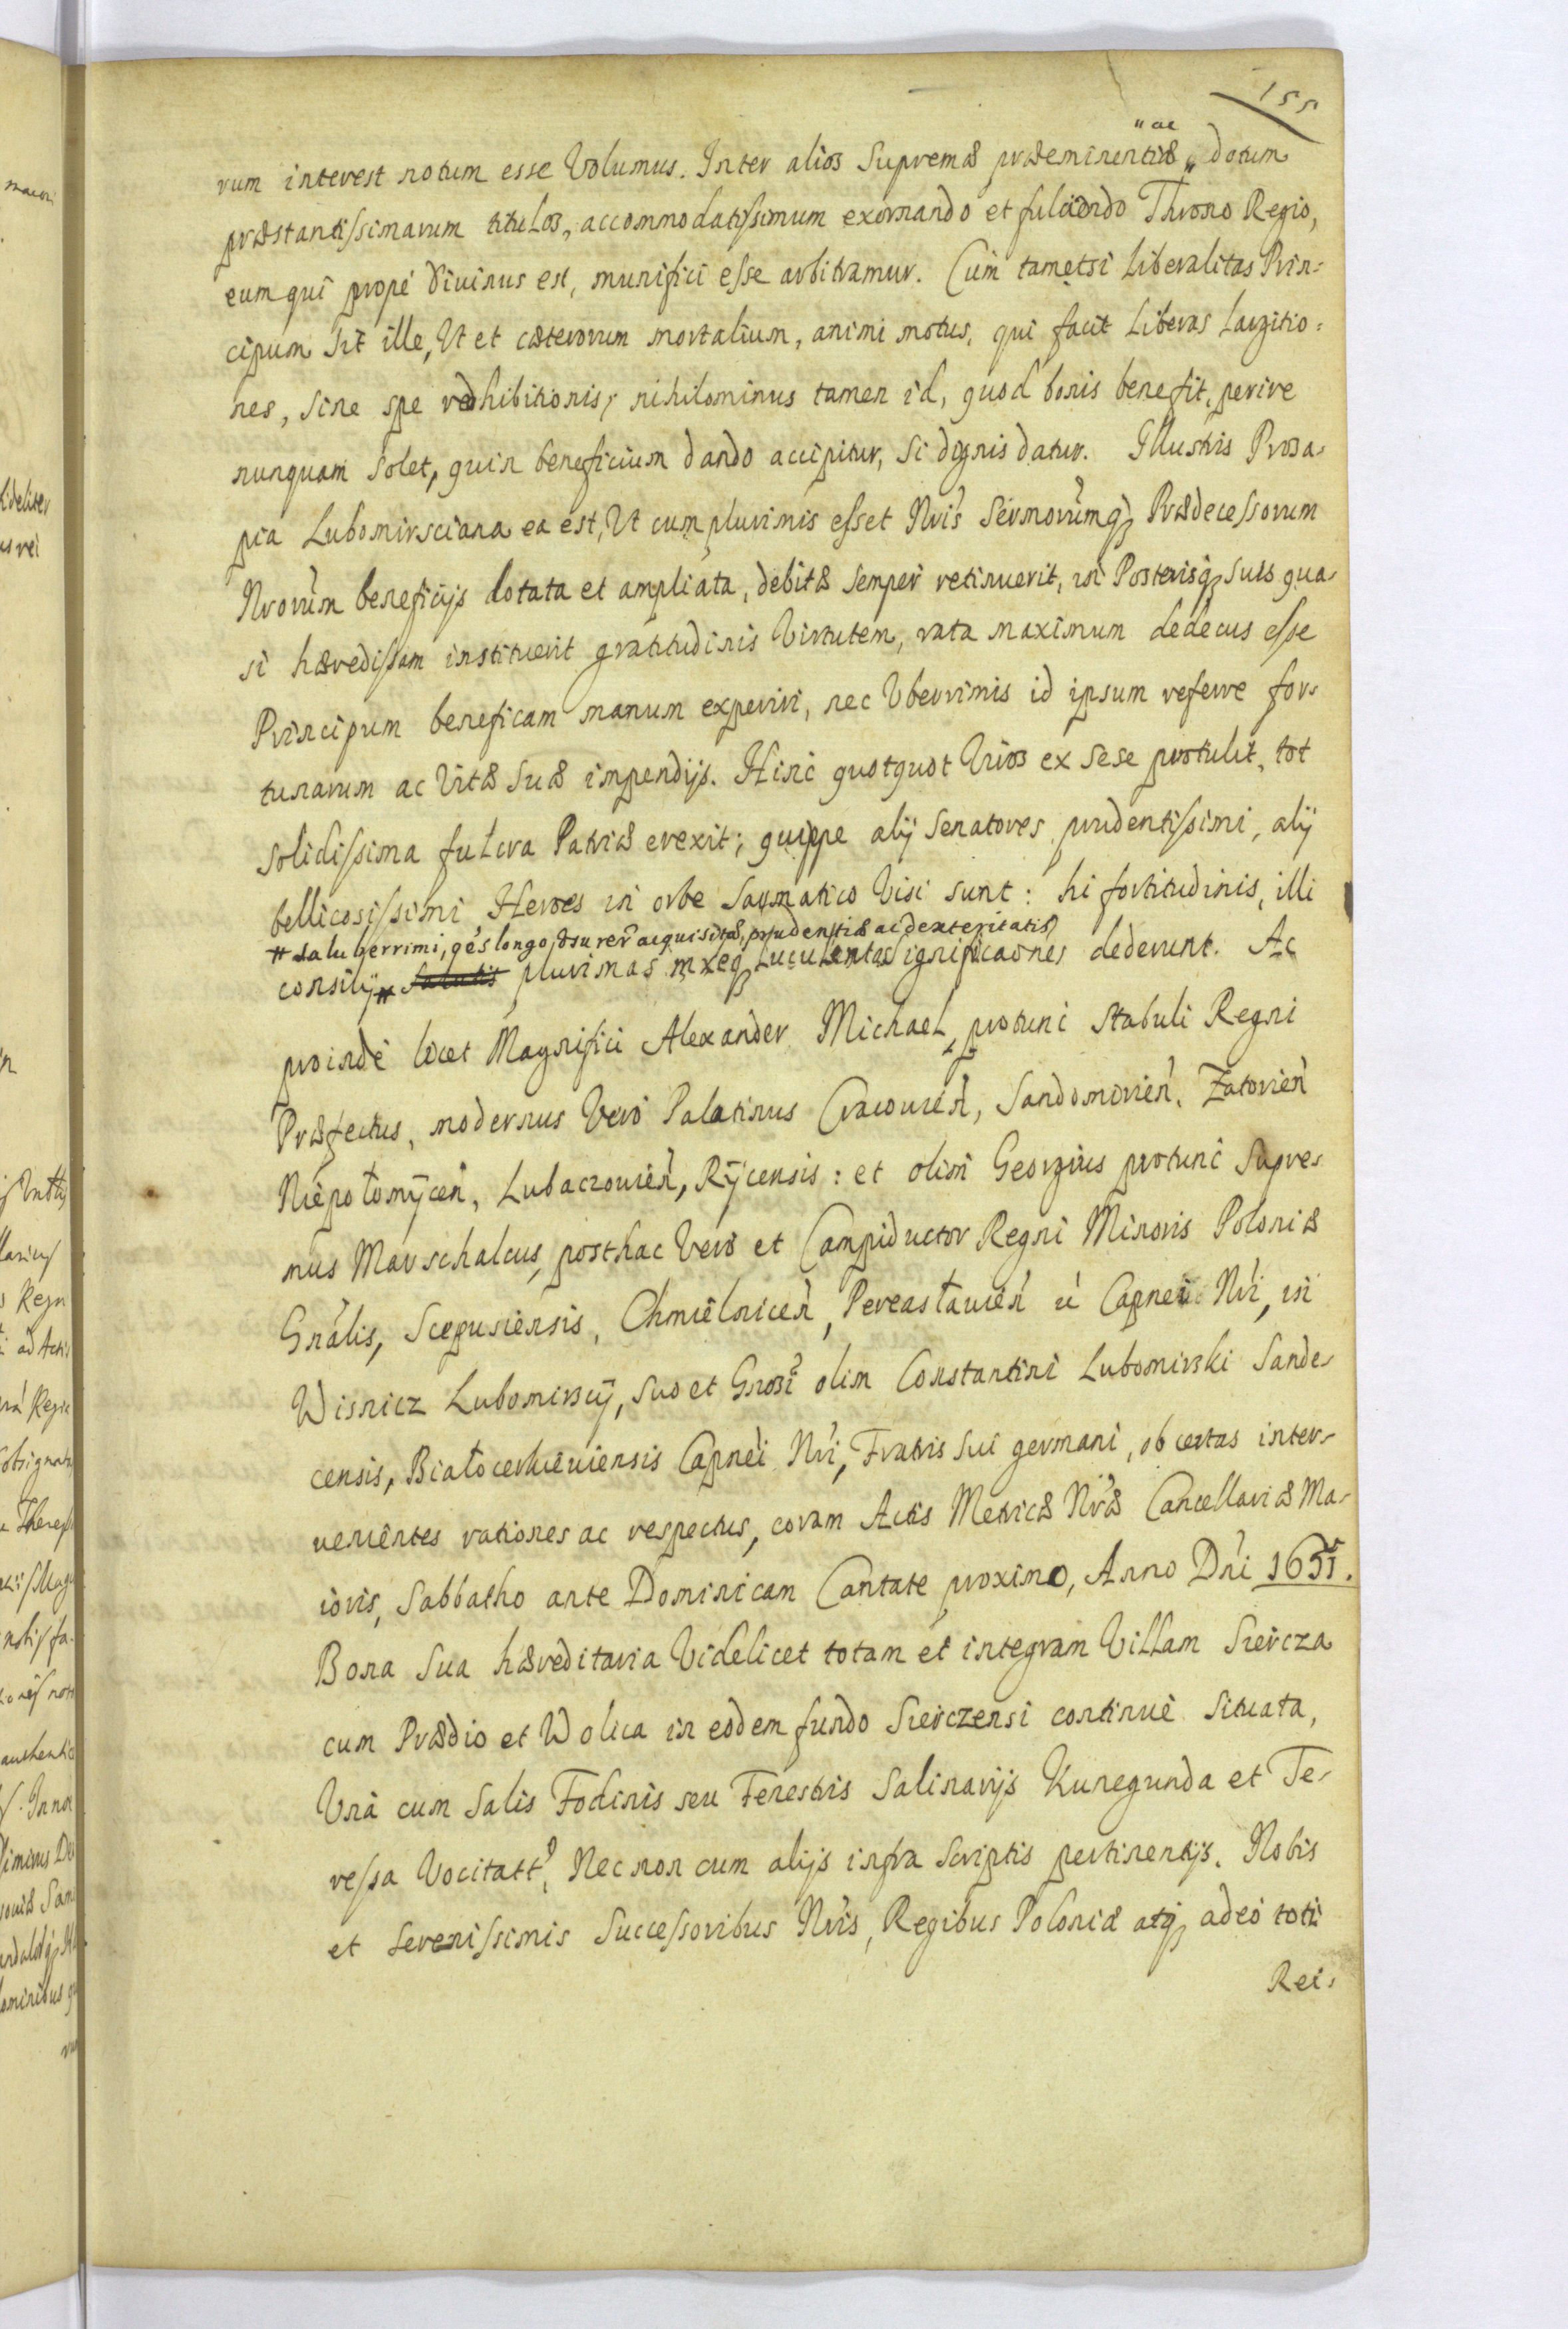 155
rum interest notum esse Volumus. Inter alios Supremæ præeminentiæ „ "ac dotum
præstantissimarum titulos, accommodatissimum exornando et fulciendo Throno Regio,
eum qui propé diuinus est, munifici esse arbitramur. Cum tametsi Liberalitas Prin-
cipum sit ille, Ut et cæterorum mortalium, animi motus, qui facit Liberas Largitio-
nes, sine spe redhibitionis, nihilominus tamen id, quod bonis benefit, perire
nunquam solet, quin beneficium dando accipitur, si dignis datur. Illustris Prosa-
pia Lubomirsciana ea est, Ut cum plurimis esset Nris Sermorumq, Prædecessorum
Nrorum beneficijs dotata et ampliata, debitæ semper retinuerit, in Posterisq suis qua-
si hæredissam instituerit gratitudinis Virtutem, rata maximum dedecus esse
Principum beneficam manum experiri, nec Uberrimis id ipsum referre for-
tunarum ac Vitæ Suæ impendijs. Hinc quotquot Viros ex sese protulit, tot
solidissima fulcra Patriæ erexit; quippe alij Senatores prudentissimi, alij
bellicosissimi Heroes in orbe Sarmatico Visi sunt: hi fortitudinis, illi
# saluberrimi, qes longo usu rer acquisitæ, prudentiæ ac dexteritatis
consilij # plurimas mxeq Luculentas significaones dederunt. Ac
proindé licet Magnifici Alexander Michael, protunc Stabuli Regni
Præfectus, modernus Vero Palatinus Cracouien, Sandomirien, Zatorien
Niepołomÿcen, Lubaczouien, Rÿcensis: et olim Georgius protunc Supre-
mus Marschalcus, posthac Vero et Campiductor Regni Minoris Poloniæ
Gnalis, Scepusiensis, Chmielnicen, Pereasłauien Capnei Nri, in
Wisnicz Lubomirscÿ, suo et Gnosi olim Constantini Lubomirski Sande-
censis, Białocerkieuiensis Capnei Nri, Fratris sui germani, ob certas inter-
uenientes rationes ac respectus, coram Actis Metricæ Nræ Cancellariæ Ma-
ioris, Sabbatho ante Dominicam Cantate proximo, Anno Dni 1655.
Bona sua hæreditaria Videlicet totam et integram Villam Siercza
cum Prædio et Wolica in eodem fundo Sierczensi continué situata,
Vná cum Salis Fodinis seu Fenestris Salinarijs Kunegunda et Te-
ressa Vocitatt, Nec non cum alijs infra scriptis pertinentijs. Nobis
et Serenissimis Successoribus Nris, Regibus Poloniæ atq adeo toti
Rei-